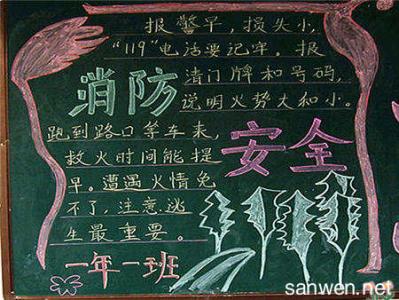 报警早，损失小，
“119”电话要记牢。报
清门牌和号码，
说明火势大和小。
消防
跑到路口等车来，
救火时间能提
早。遭遇火情免
不了，注意逃
生最重要。
安全
一年一班
sanwen.net